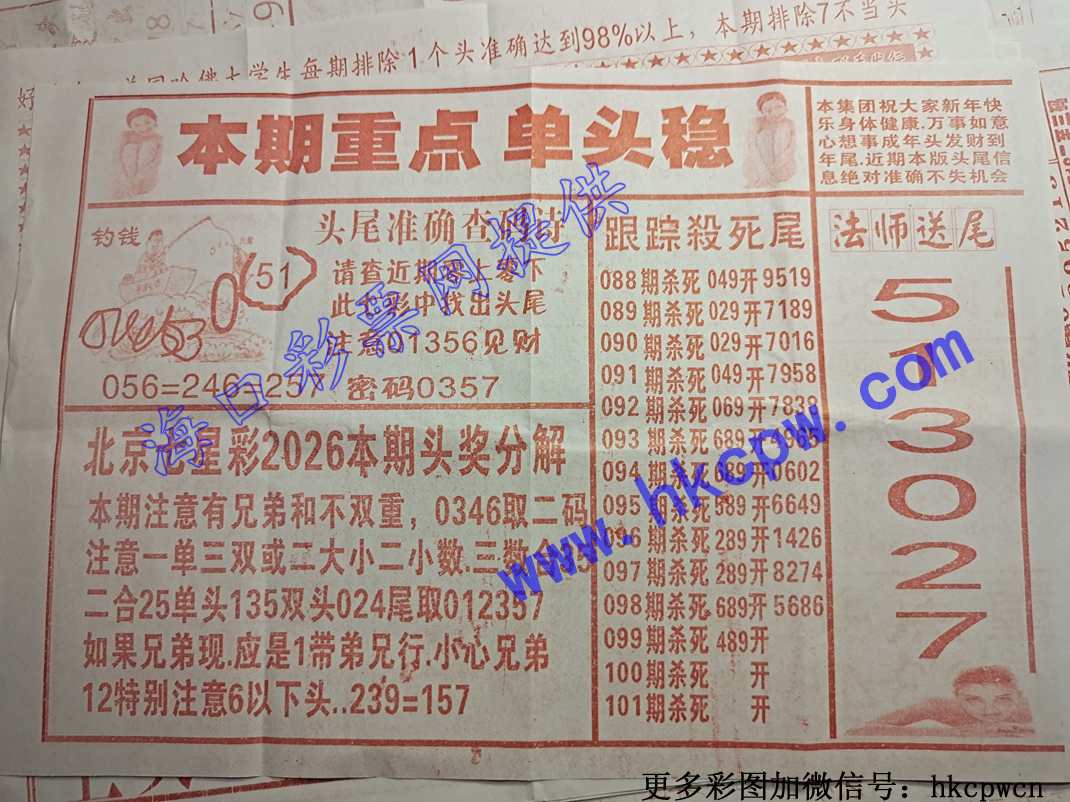 个头准确达到98%以上，本期排除7不当头
学生每期排除1
本期重点 单头稳
本集团祝大家新年快
乐身体健康.万事如意
心想事成年头发财到
年尾.近期本版头尾信
息绝对准确不失机会
钓钱
(51)
0
头尾准确查码诗
请查近期零上零下
注意01356见财
056=246=257 密码0357
北京七星彩2026本期头奖分解
本期注意有兄弟和不双重，0346取二码
注意一单三双或二大小二小数.三数合
二合25单头135双头024尾取012357
如果兄弟现.应是1带弟兄行.小心兄弟
12特别注意6以下头..239=157
跟踪殺死尾
088期杀死049开9519
089期杀死029开7189
090期杀死029开7016
091期杀死049开7958
092期杀死069开7838
093期杀死689开4965
094期杀死689开0602
095期杀死589开6649
096期杀死289开1426
097期杀死289开8274
098期杀死689开5686
099期杀死489开
100期杀死 开
101期杀死 开
法师送尾
5
1
3
0
2
7
海口彩票网提供
www.hkcpw.com
更多彩图加微信号：hkcpwcn